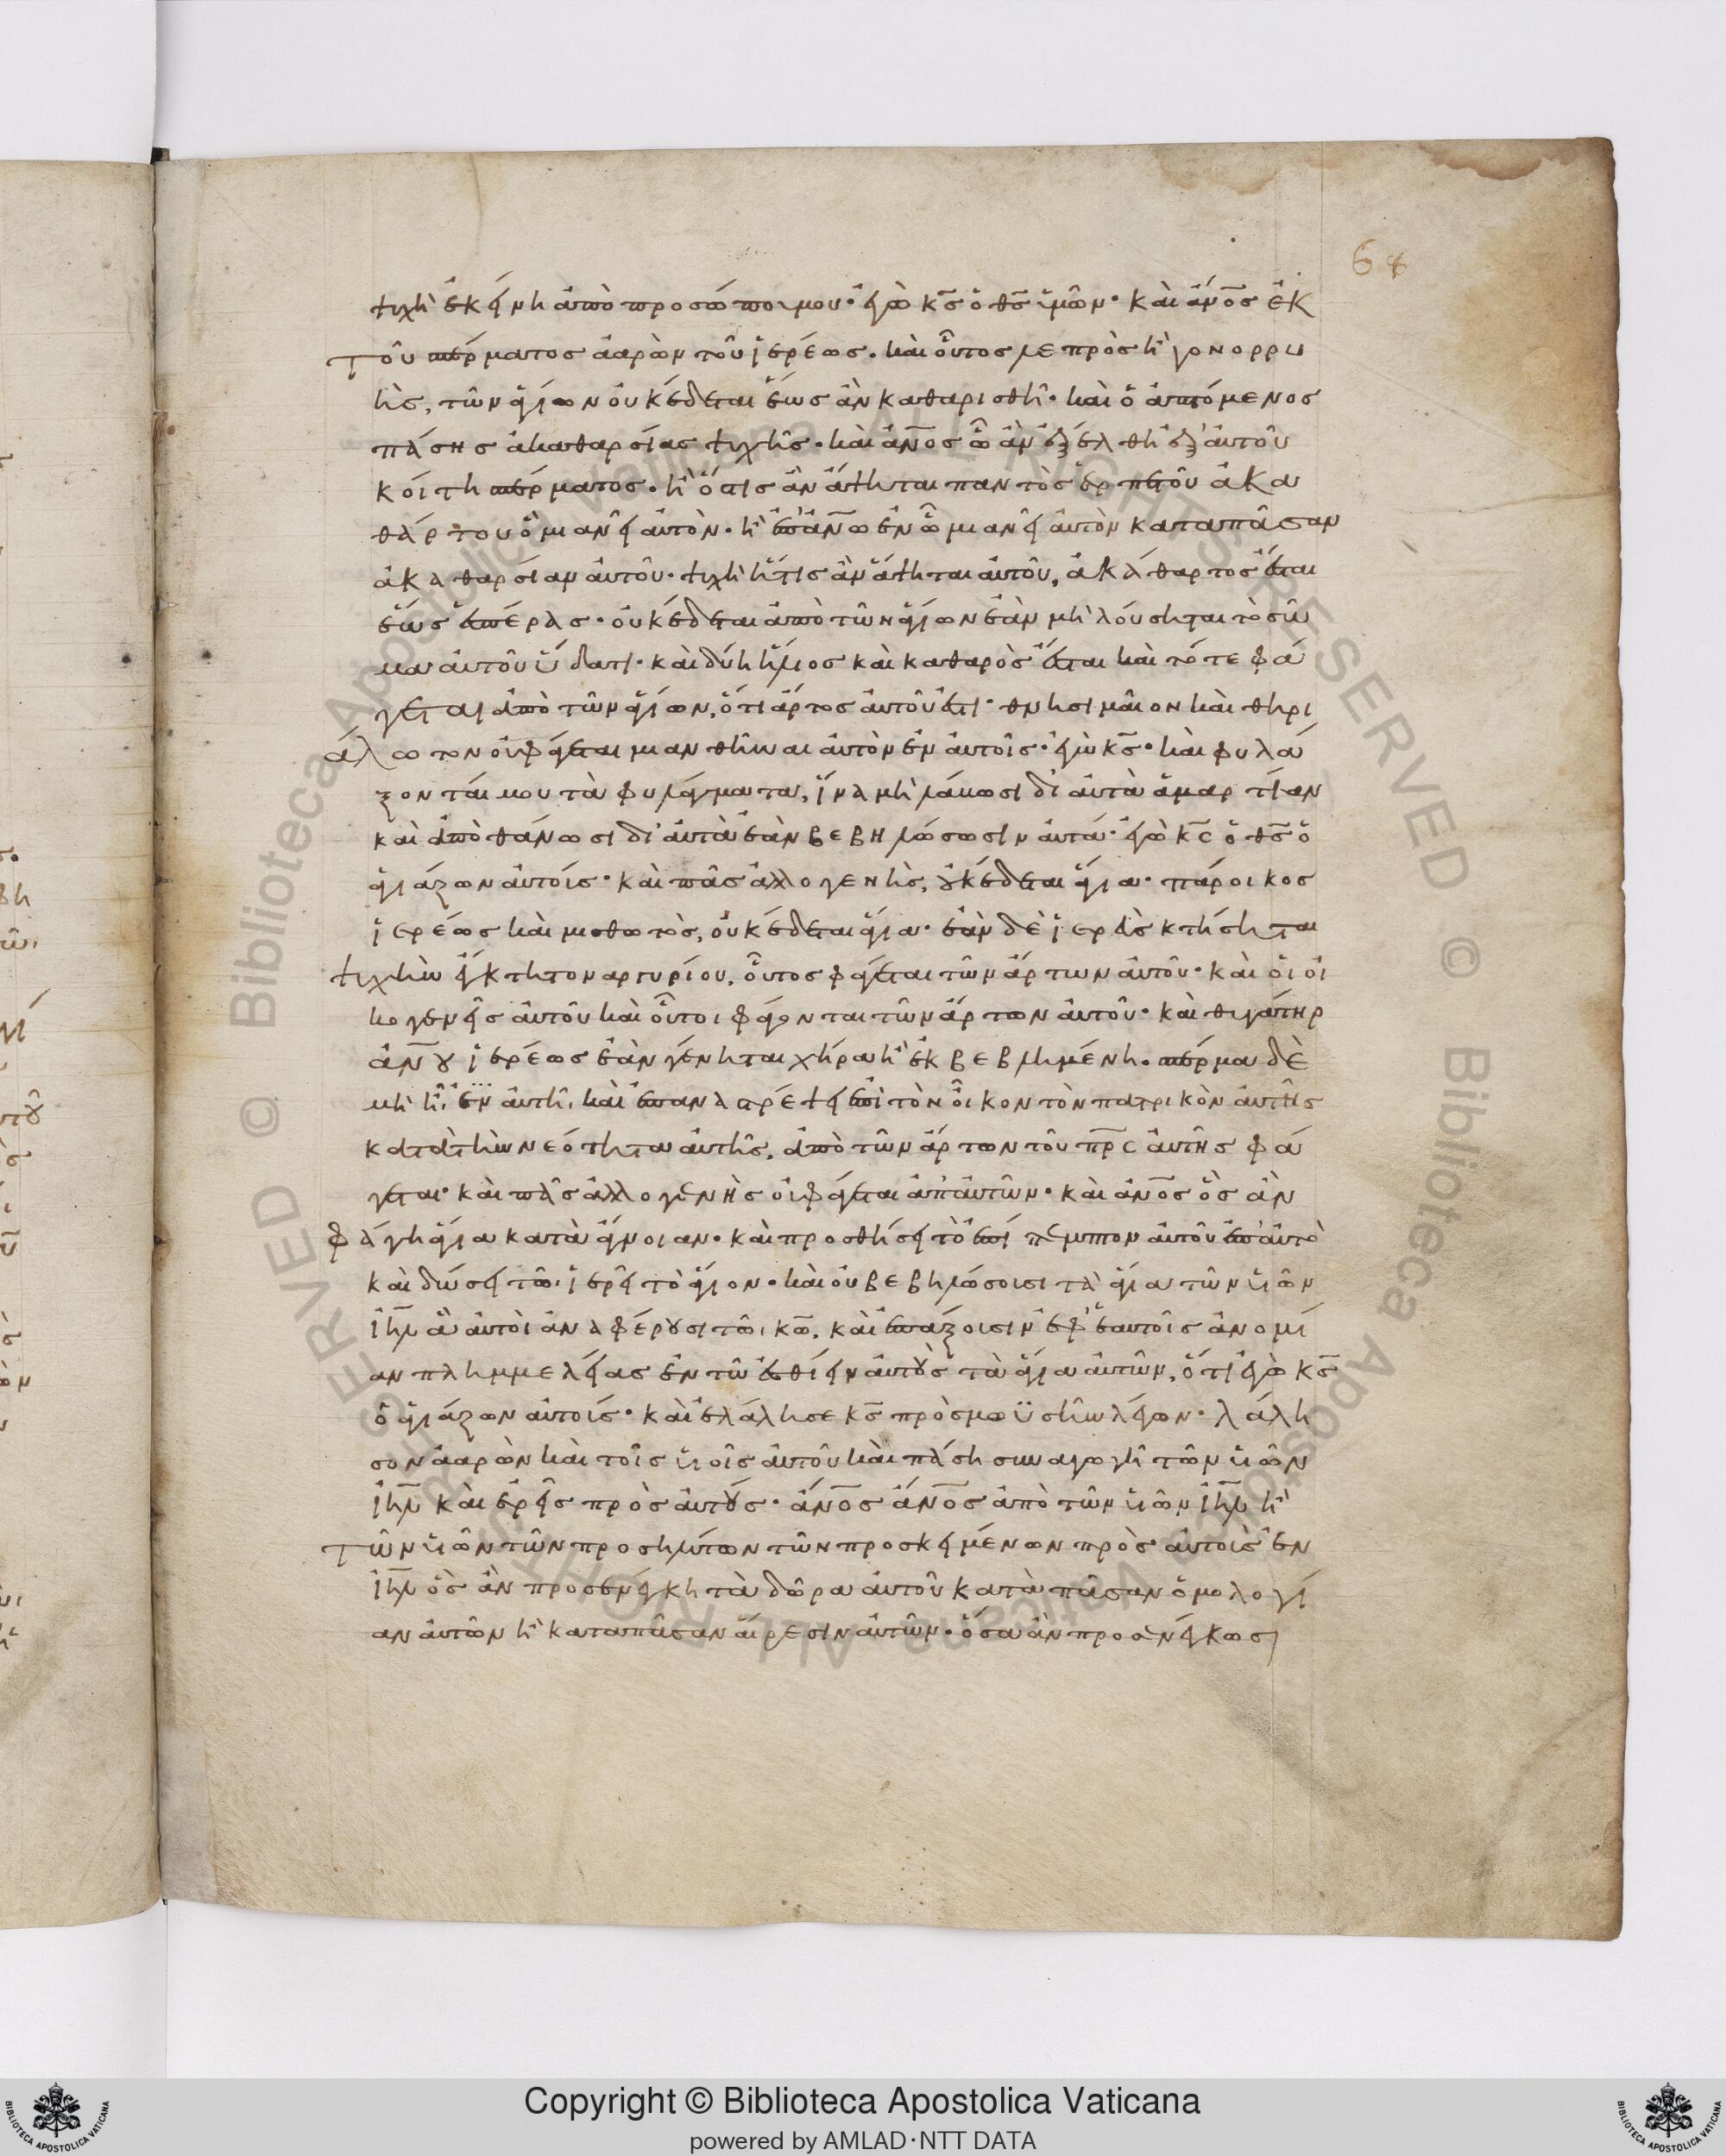 64
ψυχὴ ἐκείνη ἀπὸ προσώπου μου· ἐγὼ κ̅ς̅ ὁ θ̅ς̅ ὑμῶν· καὶ ἄν̅ο̅ς̅ ἐκ
τοῦ σπέρματος ἀαρὼν τοῦ ἱερέως· καὶ οὗτος λεπρὸς ἢ γονορρυ
ὴς, τῶν ἁγίων οὐκ ἔδεται ἕως ἂν καθαρισθῆ· καὶ ὁ ἁπτόμενος
πάσης ἀκαθαρσίας ψυχῆς· καὶ ἄν̅ο̅ς̅ ὧ ἂν ἐξέλθη ἐξ αὐτοῦ
κοίτη σπέρματος· ἢ ὅστις ἂν ἅψηται παντὸς ἑρπετοῦ ἀκα
θάρτου ὃ μιανεῖ αὐτὸν· ἢ ἐπ' ἀν̅ω̅ ἐν ὧ μιανεῖ αὐτὸν κατα πᾶσαν
ἀκαθαρσίαν αὐτοῦ· ψυχὴ ἥτις ἂν ἅψηται αὐτοῦ, ἀκάθαρτος ἔσται
ἕως ἑσπέρας· οὐκ ἔδεται ἀπὸ τῶν ἁγίων ἐὰν μὴ λούσηται τὸ σῶ
μα αὐτοῦ ὕδατι· καὶ δύη ἥλιος καὶ καθαρὸς ἔσται καὶ τότε φά
γεται ἀπὸ τῶν ἁγίων, ὅτι ἄρτος αὐτοῦ ἐστι· θνησιμαῖον καὶ θηρι
άλωτον οὐ φάγεται μιανθῆναι αὐτὸν ἐν αὐτοῖς· ἐγὼ κ̅ς̅· καὶ φυλά
ξονταί μου τὰ φυλάγματα, ἵνα μὴ λάβωσι δι' αὐτὰ ἁμαρτίαν
καὶ ἀποθάνωσι δι' αὐτὰ ἐὰν βεβηλώσωσιν αὐτά· ἐγὼ κ̅ς̅ ὁ θ̅ς̅ ὁ
ἁγιάζων αὐτούς· καὶ πᾶς ἀλλογενὴς, οὐκ ἔδεται ἅγια· πάροικος
ἱερέως καὶ μισθωτὸς, οὐκ ἔδεται ἅγια· ἐὰν δὲ ἱερεὺς κτήσηται
ψυχὴν ἔγκτητον αργυρίου, οὗτος φάγεται τῶν ἄρτων αὐτοῦ· καὶ οἱ οἰ
κογενεῖς αὐτοῦ καὶ οὗτοι φάγονται τῶν ἄρτων αὐτοῦ· καὶ θυγάτηρ
ἀν̅ο̅υ̅ ἱερέως ἐὰν γένηται χήρα ἢ ἐκβεβλημένη· σπέρμα δὲ
μὴ ἦ ἐν αὐτῆ, καὶ ἐπαναστρέψει ἐπὶ τὸν οἶκον τὸν πατρικὸν αὐτῆς
κατὰ τὴν νεότητα αὐτῆς, ἀπὸ τῶν ἄρτων τοῦ π̅ρ̅ς̅ αὐτῆς φά
γεται· καὶ πᾶς ἀλλογενὴς οὐ φάγεται ἀπ' αὐτῶν· καὶ ἄν̅ο̅ς̅ ὃς ἂν
φάγη ἅγια κατὰ ἄγνοιαν· καὶ προσθήσει τὸ ἐπί πεμπτον αὐτοῦ ἐπ' αὐτὸ
καὶ δώσει τῶ ἱερεῖ τὸ ἅγιον· καὶ οὐ βεβηλώσουσι τὰ ἅγια τῶν υἱῶν
ἰ̅η̅λ̅ ἃ αὐτοὶ ἀναφέρουσι τῶ κ̅ω̅, καὶ ἐπάξουσιν ἐφ' ἑαυτοῖς ἀνομί
αν πλημμελείας ἐν τῶ ἐσθίειν αὐτοὺς τὰ ἅγια αὐτῶν, ὅτι ἐγὼ κ̅ς̅
ὁ ἁγιάζων αὐτούς· καὶ ἐλάλησε κ̅ς̅ πρὸς μωϋσῆν λέγων· λάλη
σον ἀαρὼν καὶ τοῖς υἱοῖς αὐτοῦ καὶ πάση συναγωγῆ τῶν υἱῶν
ἰ̅η̅λ̅ καὶ ἐρεῖς πρὸς αὐτούς· ἄν̅ο̅ς̅ ἄν̅ο̅ς̅ ἀπὸ τῶν υἱῶν ἰ̅η̅λ̅ ἢ
τῶν υἱῶν τῶν προσηλύτων τῶν προσκειμένων πρὸς αὐτοὺς ἐν
ἰ̅η̅λ̅ ὃς ἂν προσενέγκη τὰ δῶρα αὐτοῦ κατὰ πᾶσαν ὁμολογί
αν αὐτῶν ἢ κατα πᾶσαν αἵρεσιν αὐτῶν· ὅσα ἂν προσενέγκωσι
Copyright © Biblioteca Apostolica Vaticana
powered by AMLAD·NTT DATA